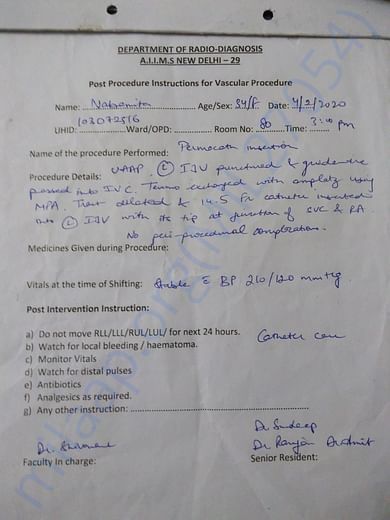 DEPARTMENT OF RADIO-DIAGNOSIS
A.I.I.M.S NEW DELHI – 29
Post Procedure Instructions for Vascular Procedure
Name: Age/Sex: 5y/F Date: 4/2/2020
UHID: 103072516 Ward/OPD: Room No: 80 Time: 3:10 pm
Name of the procedure Performed: Permcath insertion
Procedure Details: UAAP. Ⓛ IJV punctured & guidewire
passed into IVC. Terumo exchanged with amplatz using
MPA. Tract dilated & 14.5 Fr catheter inserted
into Ⓛ IJV with its tip at junction of SVC & RA.
No peri-procedural complications.
Medicines Given during Procedure:
Vitals at the time of Shifting: Stable c̄ BP 210/120 mmHg.
Post Intervention Instruction:
a) Do not move RLL/LLL/RUL/LUL/ for next 24 hours.
Catheter care
b) Watch for local bleeding / haematoma.
c) Monitor Vitals
d) Watch for distal pulses
e) Antibiotics
f) Analgesics as required.
g) Any other instruction:
Dr Sudeep
Dr. Dr Ranjan Dr Amit
Faculty In charge: Senior Resident: